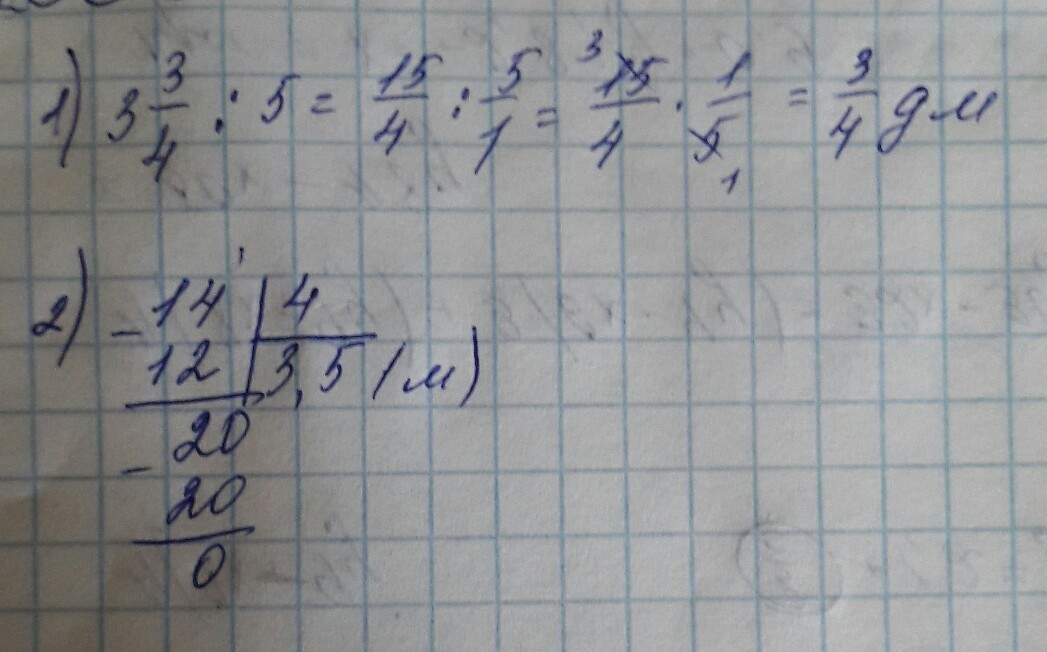 1) 3 3/4 : 5 = 15/4 : 5/1 = 15/4 · 1/5 = 3/4 дм
3
1
2) - 14 | 4
12 | 3,5 (м)
- 20
20
0